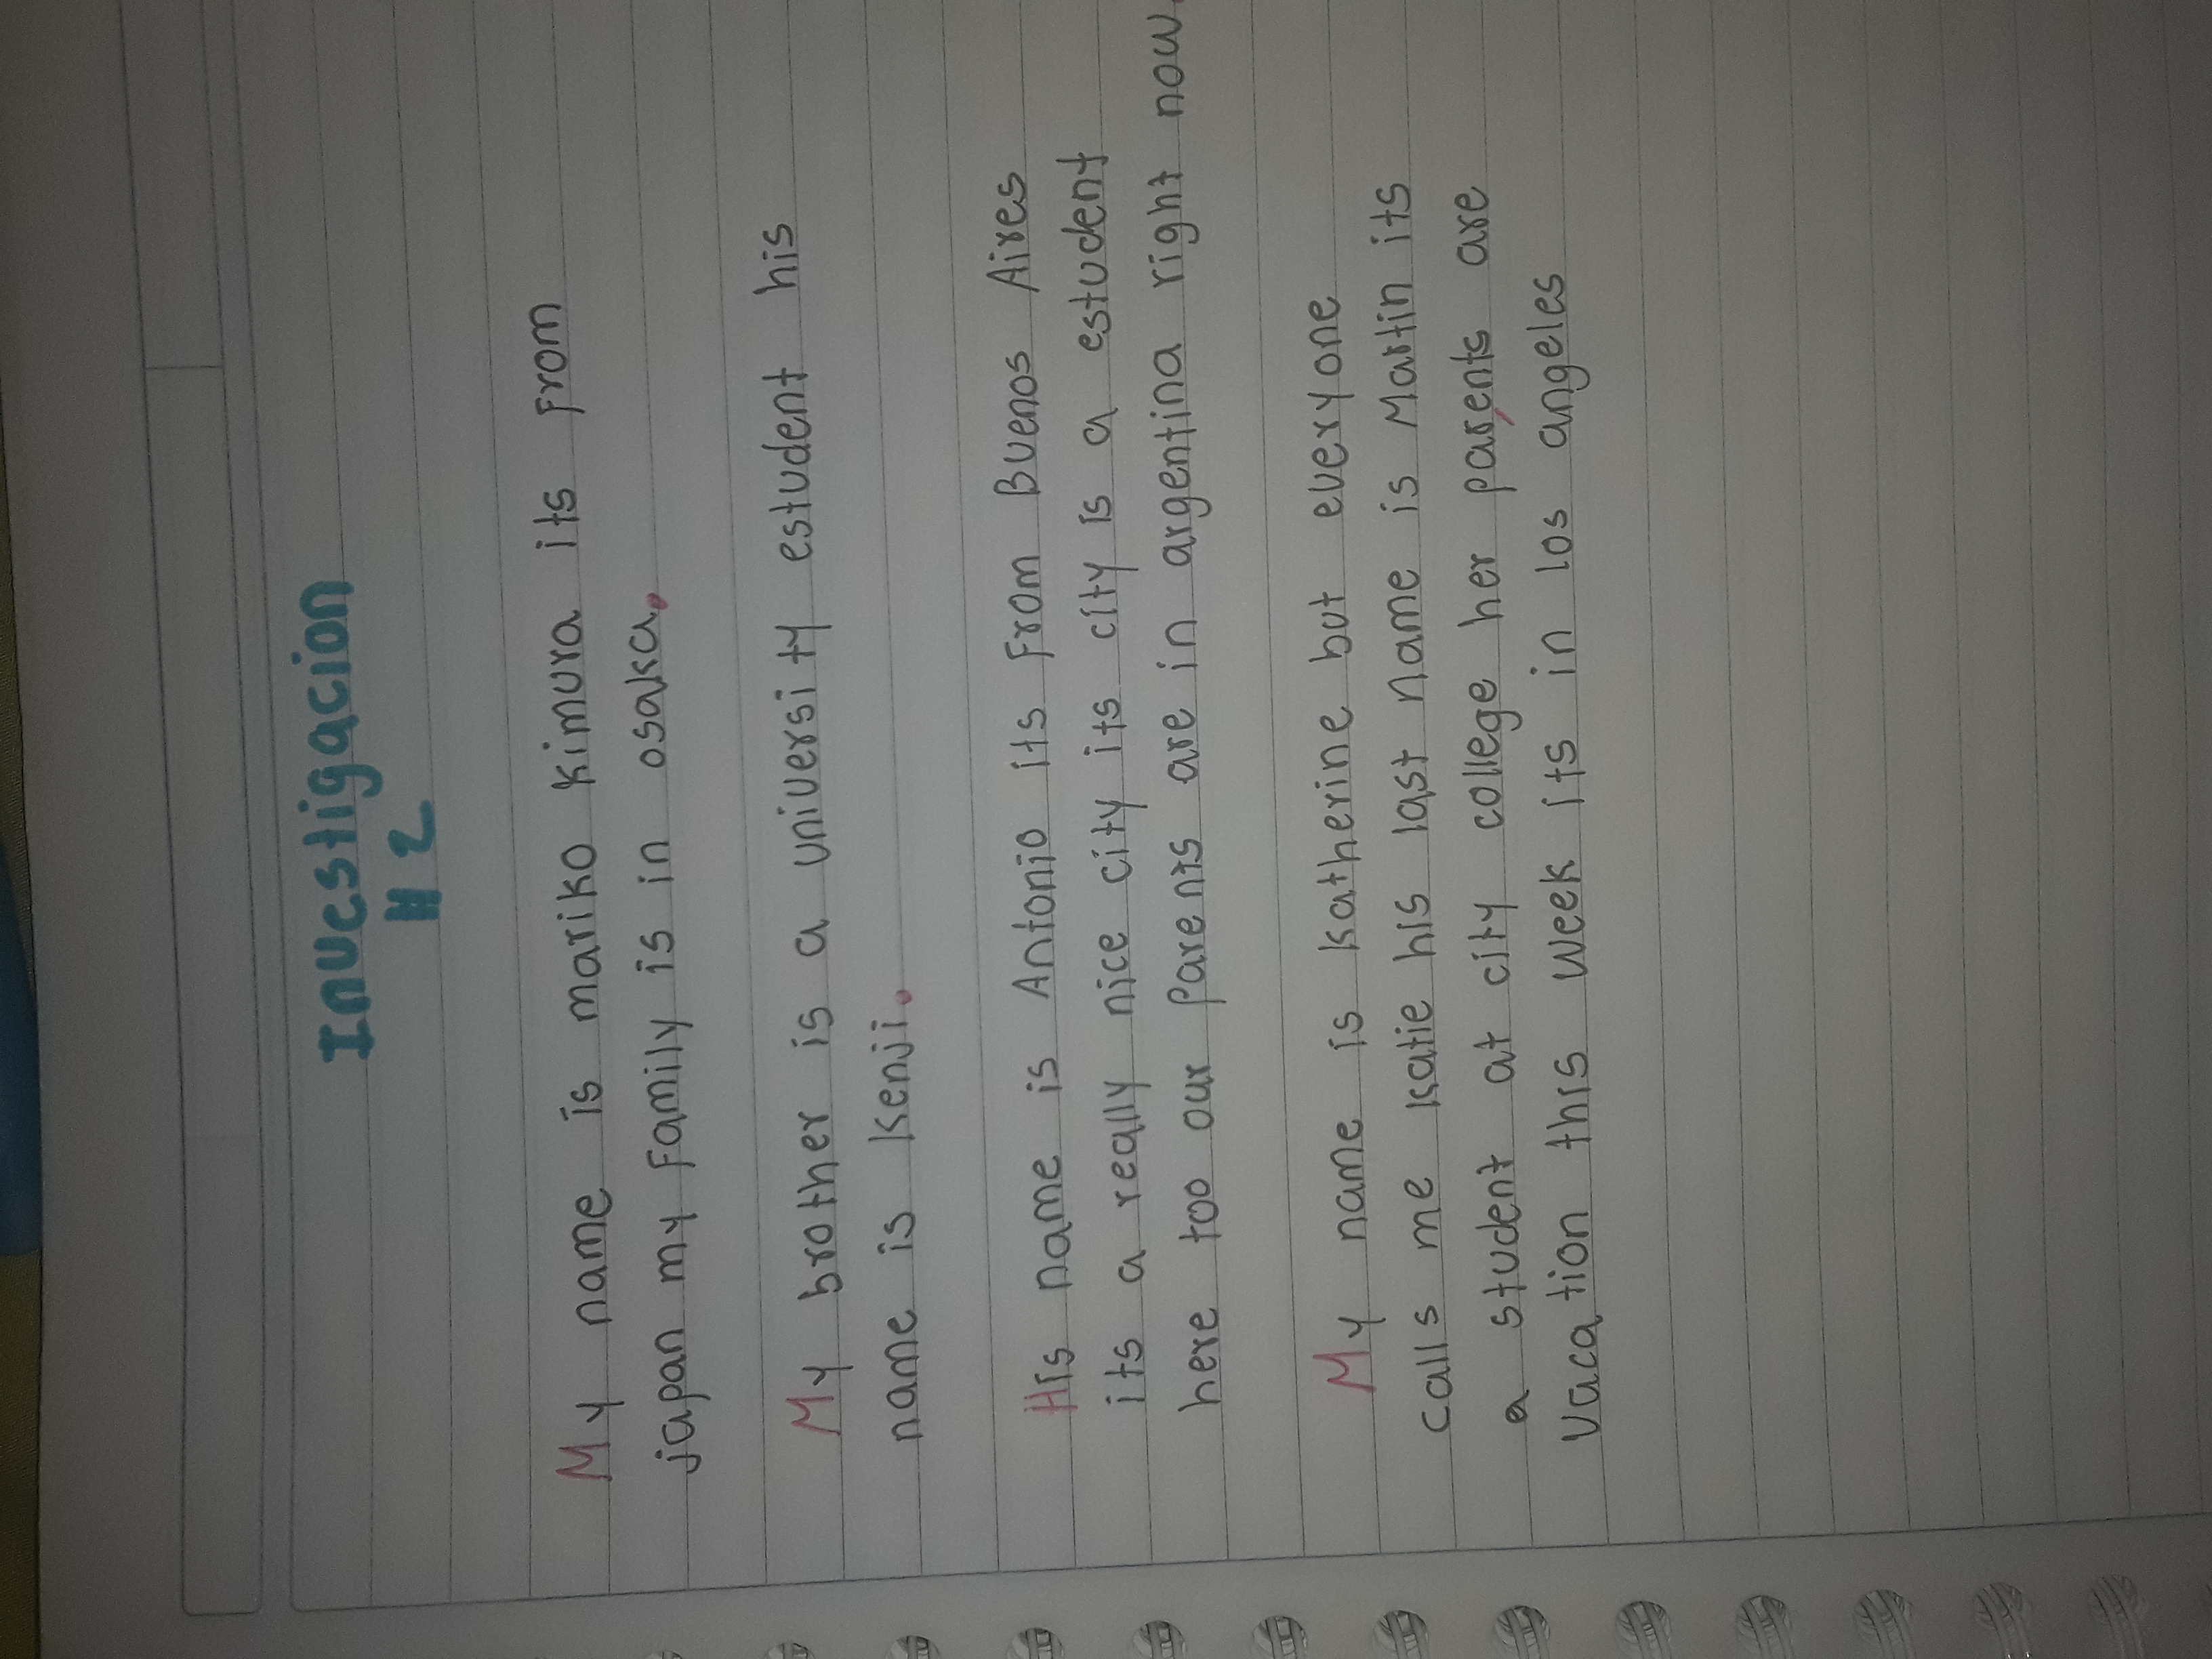 Investigacion
# 2
My name is mariko kimura its From
japan my Family is in osaka.
My brother is a university estudent his
name is Kenji.
His name is Antonio its From Buenos Aires
its a really nice city its city is a estudent
here too our Parents are in argentina right now.
My name is katherine but everyone
calls me katie his last name is Martin its
a student at city college her parents are
vacation this week its in los angeles